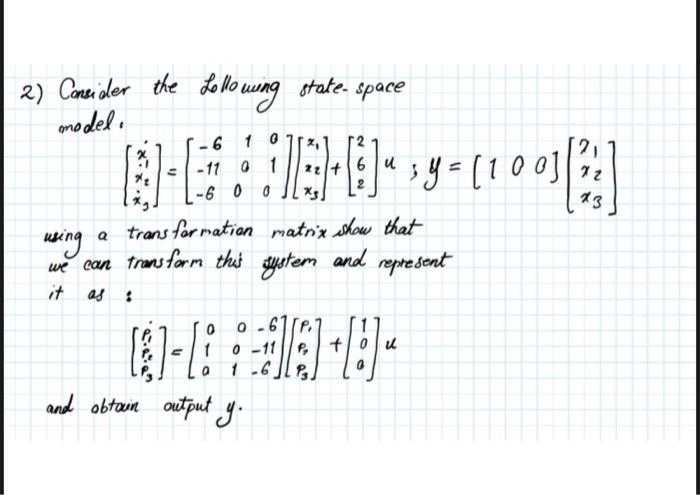 2) Consider the following state-space
model.
[ẋ1 ẋ2 ẋ3] = [-6 1 0; -11 0 1; -6 0 0] [x1 x2 x3] + [2 6 2] u ; y = [1 0 0] [x1 x2 x3]
using a transformation matrix show that
we can transform this system and represent
it as :
[Ṗ1 Ṗ2 Ṗ3] = [0 0 -6; 1 0 -11; 0 1 -6] [P1 P2 P3] + [1 0 0] u
and obtain output y.